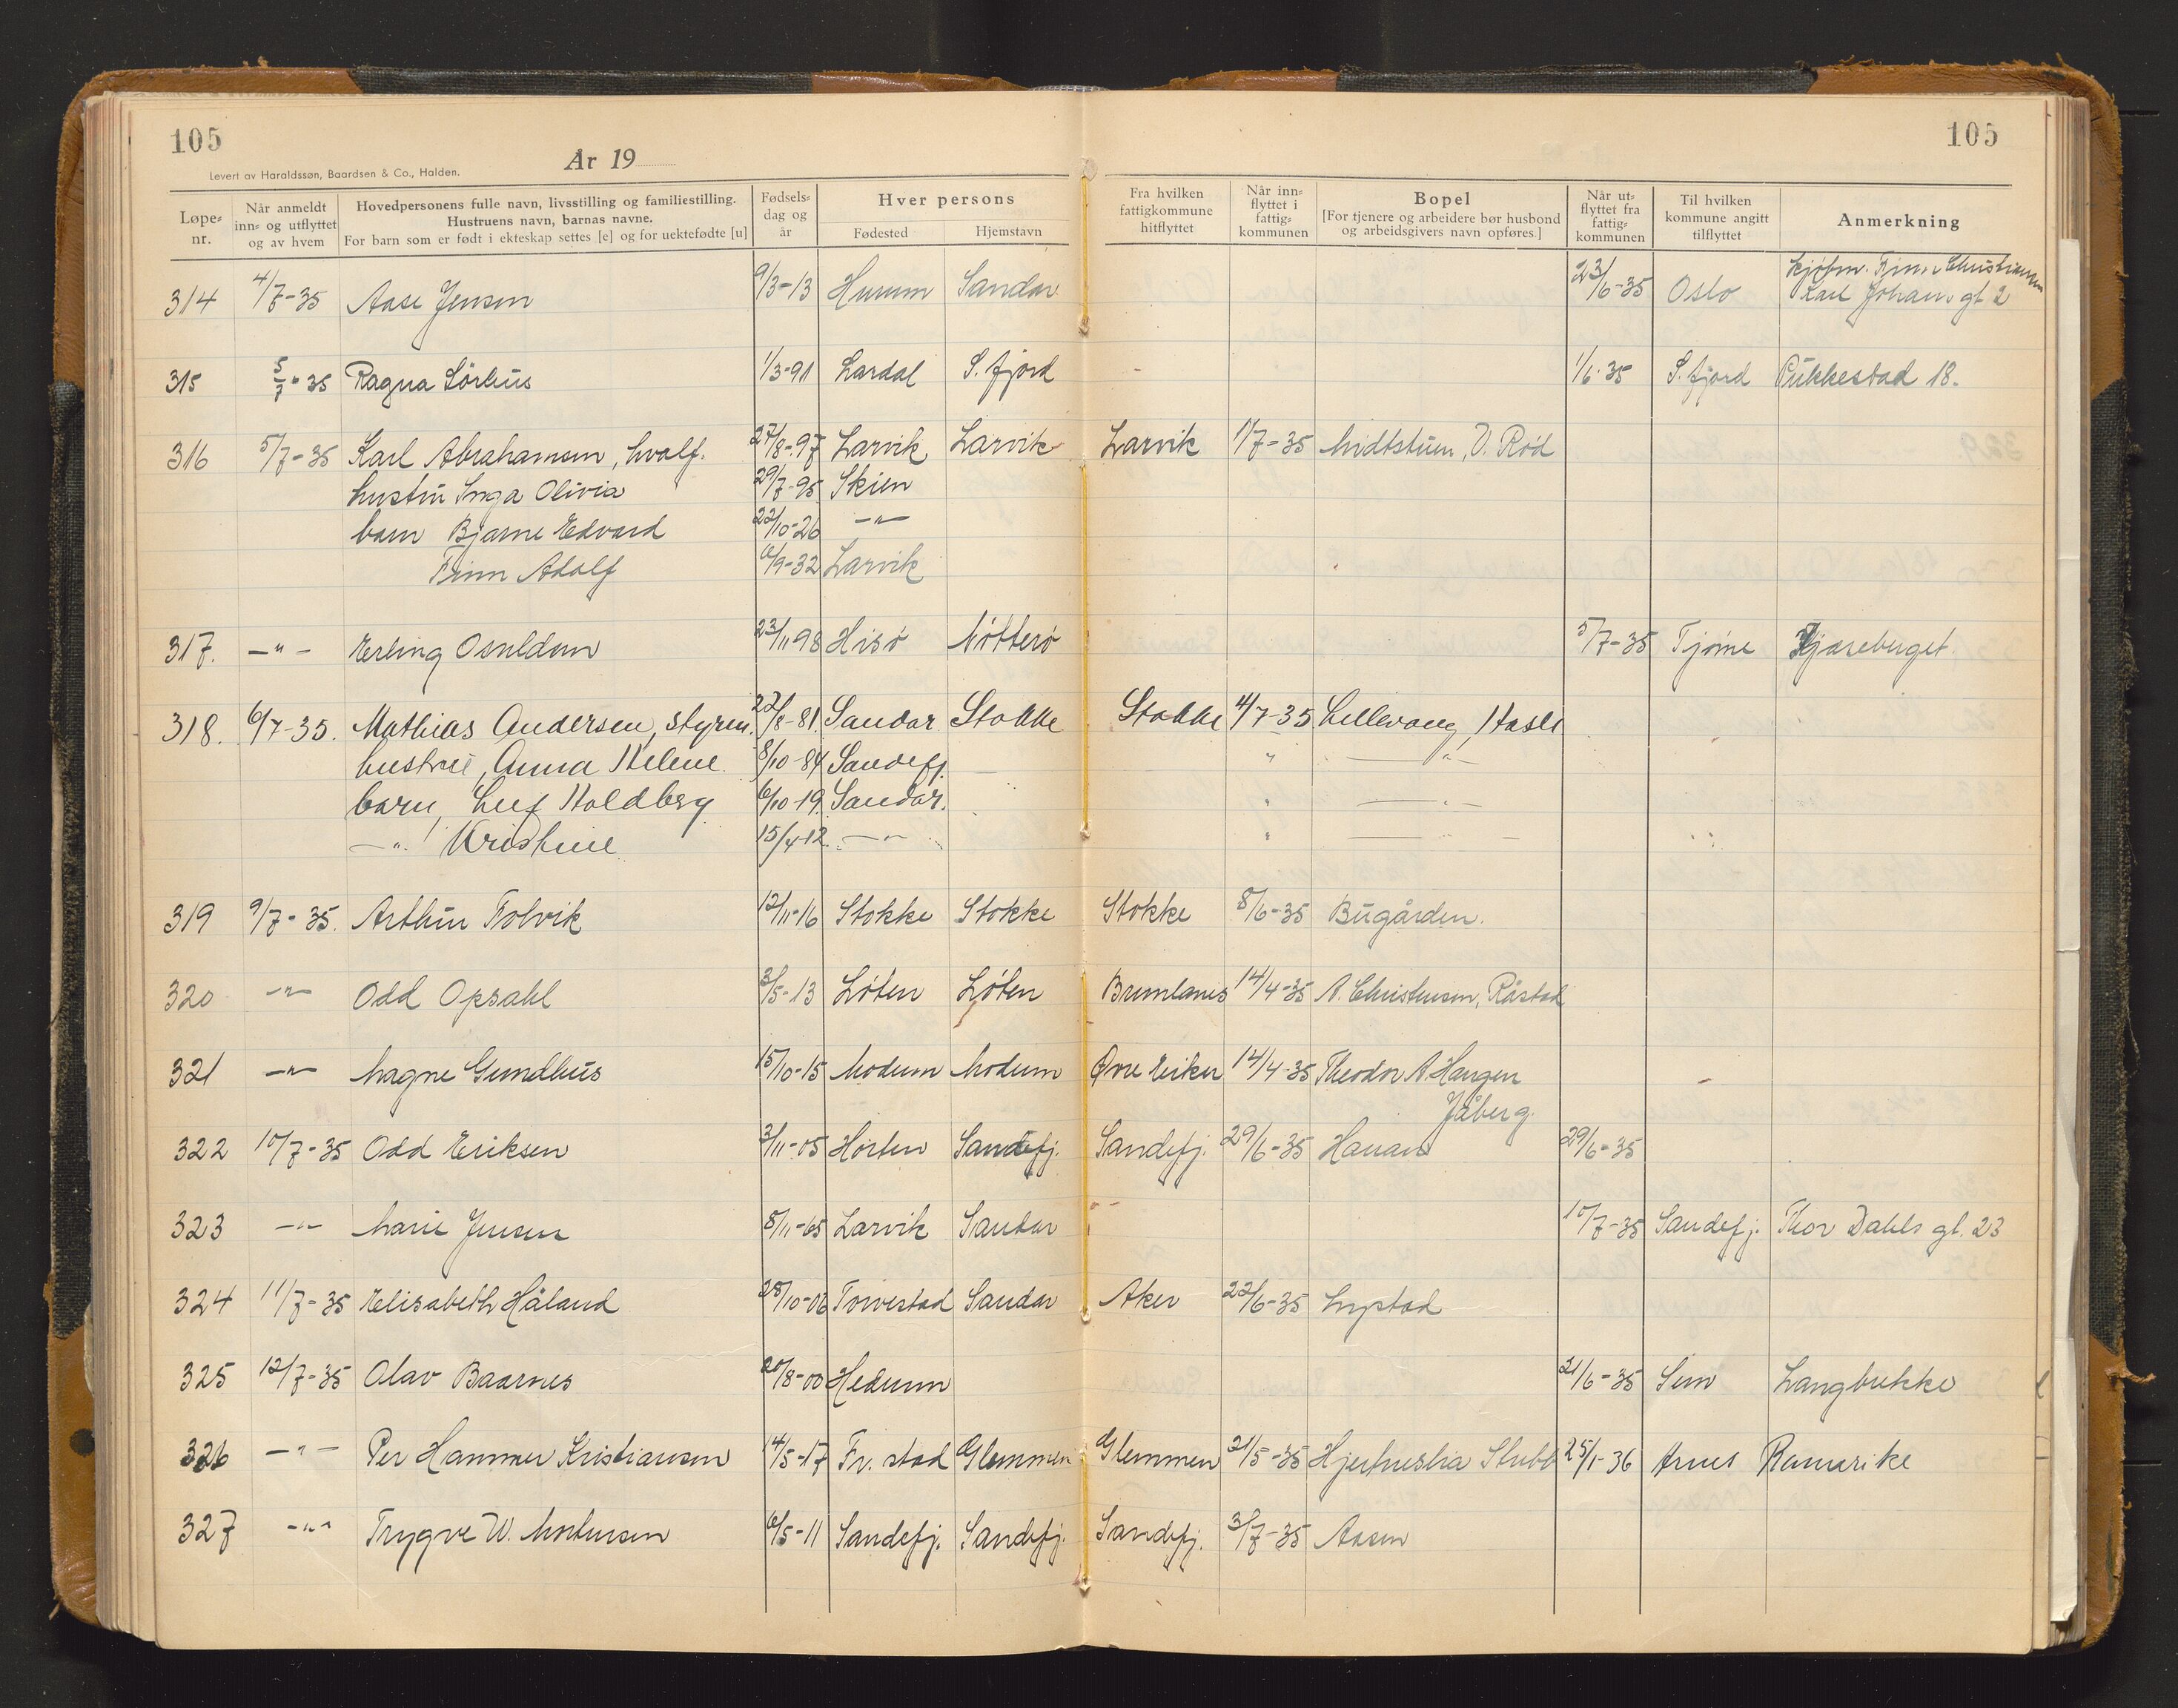 105
105
År 19
Levert av Haraldssøn, Baardsen & Co., Halden.
Løpe-nr. | Når anmeldt inn- og utflyttet og av hvem | Hovedpersonens fulle navn, livsstilling og familiestilling. Hustruens navn, barnas navne. For barn som er født i ekteskap settes [e] og for uektefødte [u] | Fødsels-dag og år | Hver persons Fødested | Hjemstavn | Fra hvilken fattigkommune hitflyttet | Når inn-flyttet i fattig-kommunen | Bopel [For tjenere og arbeidere bør husbond og arbeidsgivers navn opføres.] | Når ut-flyttet fra fattig-kommunen | Til hvilken kommune angitt tilflyttet | Anmerkning
314 4/7-35 Aase Jensen 9/3-13 Hurum Sandar 23/6-35 Oslo Kjøbm. Christiansen Karl Johans gt 2
315 5/7-35 Ragna Sörhus 1/3-91 Lardal S.fjord 1/6-35 S.fjord Pukkestad 18.
316 5/7-35 Karl Abrahamsen, hvalf. 27/8-97 Larvik Larvik Larvik 1/7-35 Midtstuen, V. Rød
hustru Inga Olivia 29/7-95 Skien
barn Bjarne Edvard 22/10-26 -"-
Finn Adolf 6/9-32 Larvik
317. -"- Erling Osuldsen 23/11 98 Hisö Nötterö 5/7-35 Tjöme
318. 6/7-35. Mathias Andersen, styrm. 22/8-81. Sandar Stokke Stokke 4/7-35 Lillevang, Hasle
hustru, Anna Helene 8/10-84 Sandefj. " -"-
barn, Leif Holdberg 6/10-19. Sandar. " -"-
-"- Kristine 15/4-12. -"- " -"-
319 9/7-35. Arthur Tolvik 12/11-16 Stokke Stokke Stokke 8/6-35 Bugården.
320 -"- Odd Opsahl 3/5-13 Löten Löten Brunlanes 14/4-35 A. Christensen, Råstad
321 -"- Magne Gundhus 15/10-15 Modum Modum Øvre Eiker 14/4-35 Theodor A. Haugen
Jåberg.
322 10/7-35 Odd Eriksen 3/11-05 Horten Sandefj. Sandefj. 29/6-35 Hauan 29/6-35
323 -"- Marie Jensen 8/11-65 Larvik Sandar 10/7-35 Sandefj. Thor Dahls gt. 23
324 11/7-35 Elisabeth Håland 28/10-06 Torvestad Sandar Aker 22/6-35 Lystad
325 12/7-35 Olav Baarnes 20/8-00 Hedrum 21/6-35 Sem Langbrekke
326 -"- Per Hammer Kristiansen 14/5-17 Fr.stad Glemmen Glemmen 21/5-35 Hjertneslia Stubb 25/1-36 Årnes Romerike
327 -"- Trygve W. Mortensen 6/5-11 Sandefj. Sandefj. Sandefj. 3/7-35 Aasen